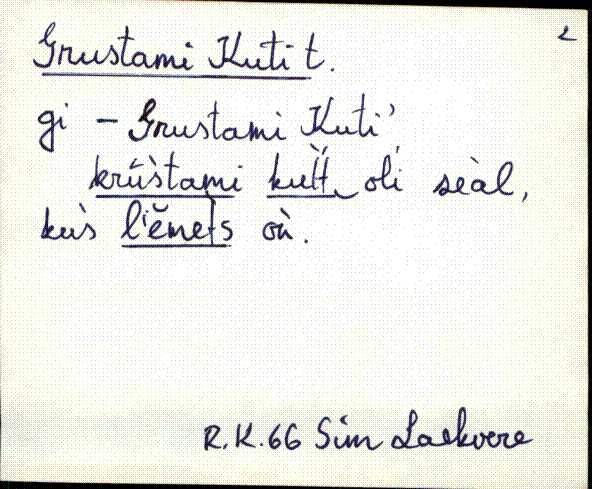 2
Grustami Kuti t.
gi - Grustami Kuti'
krùstami kutt, oli sèal,
kus l'ĕnets òn.
R.K.66 Sim Laekvere